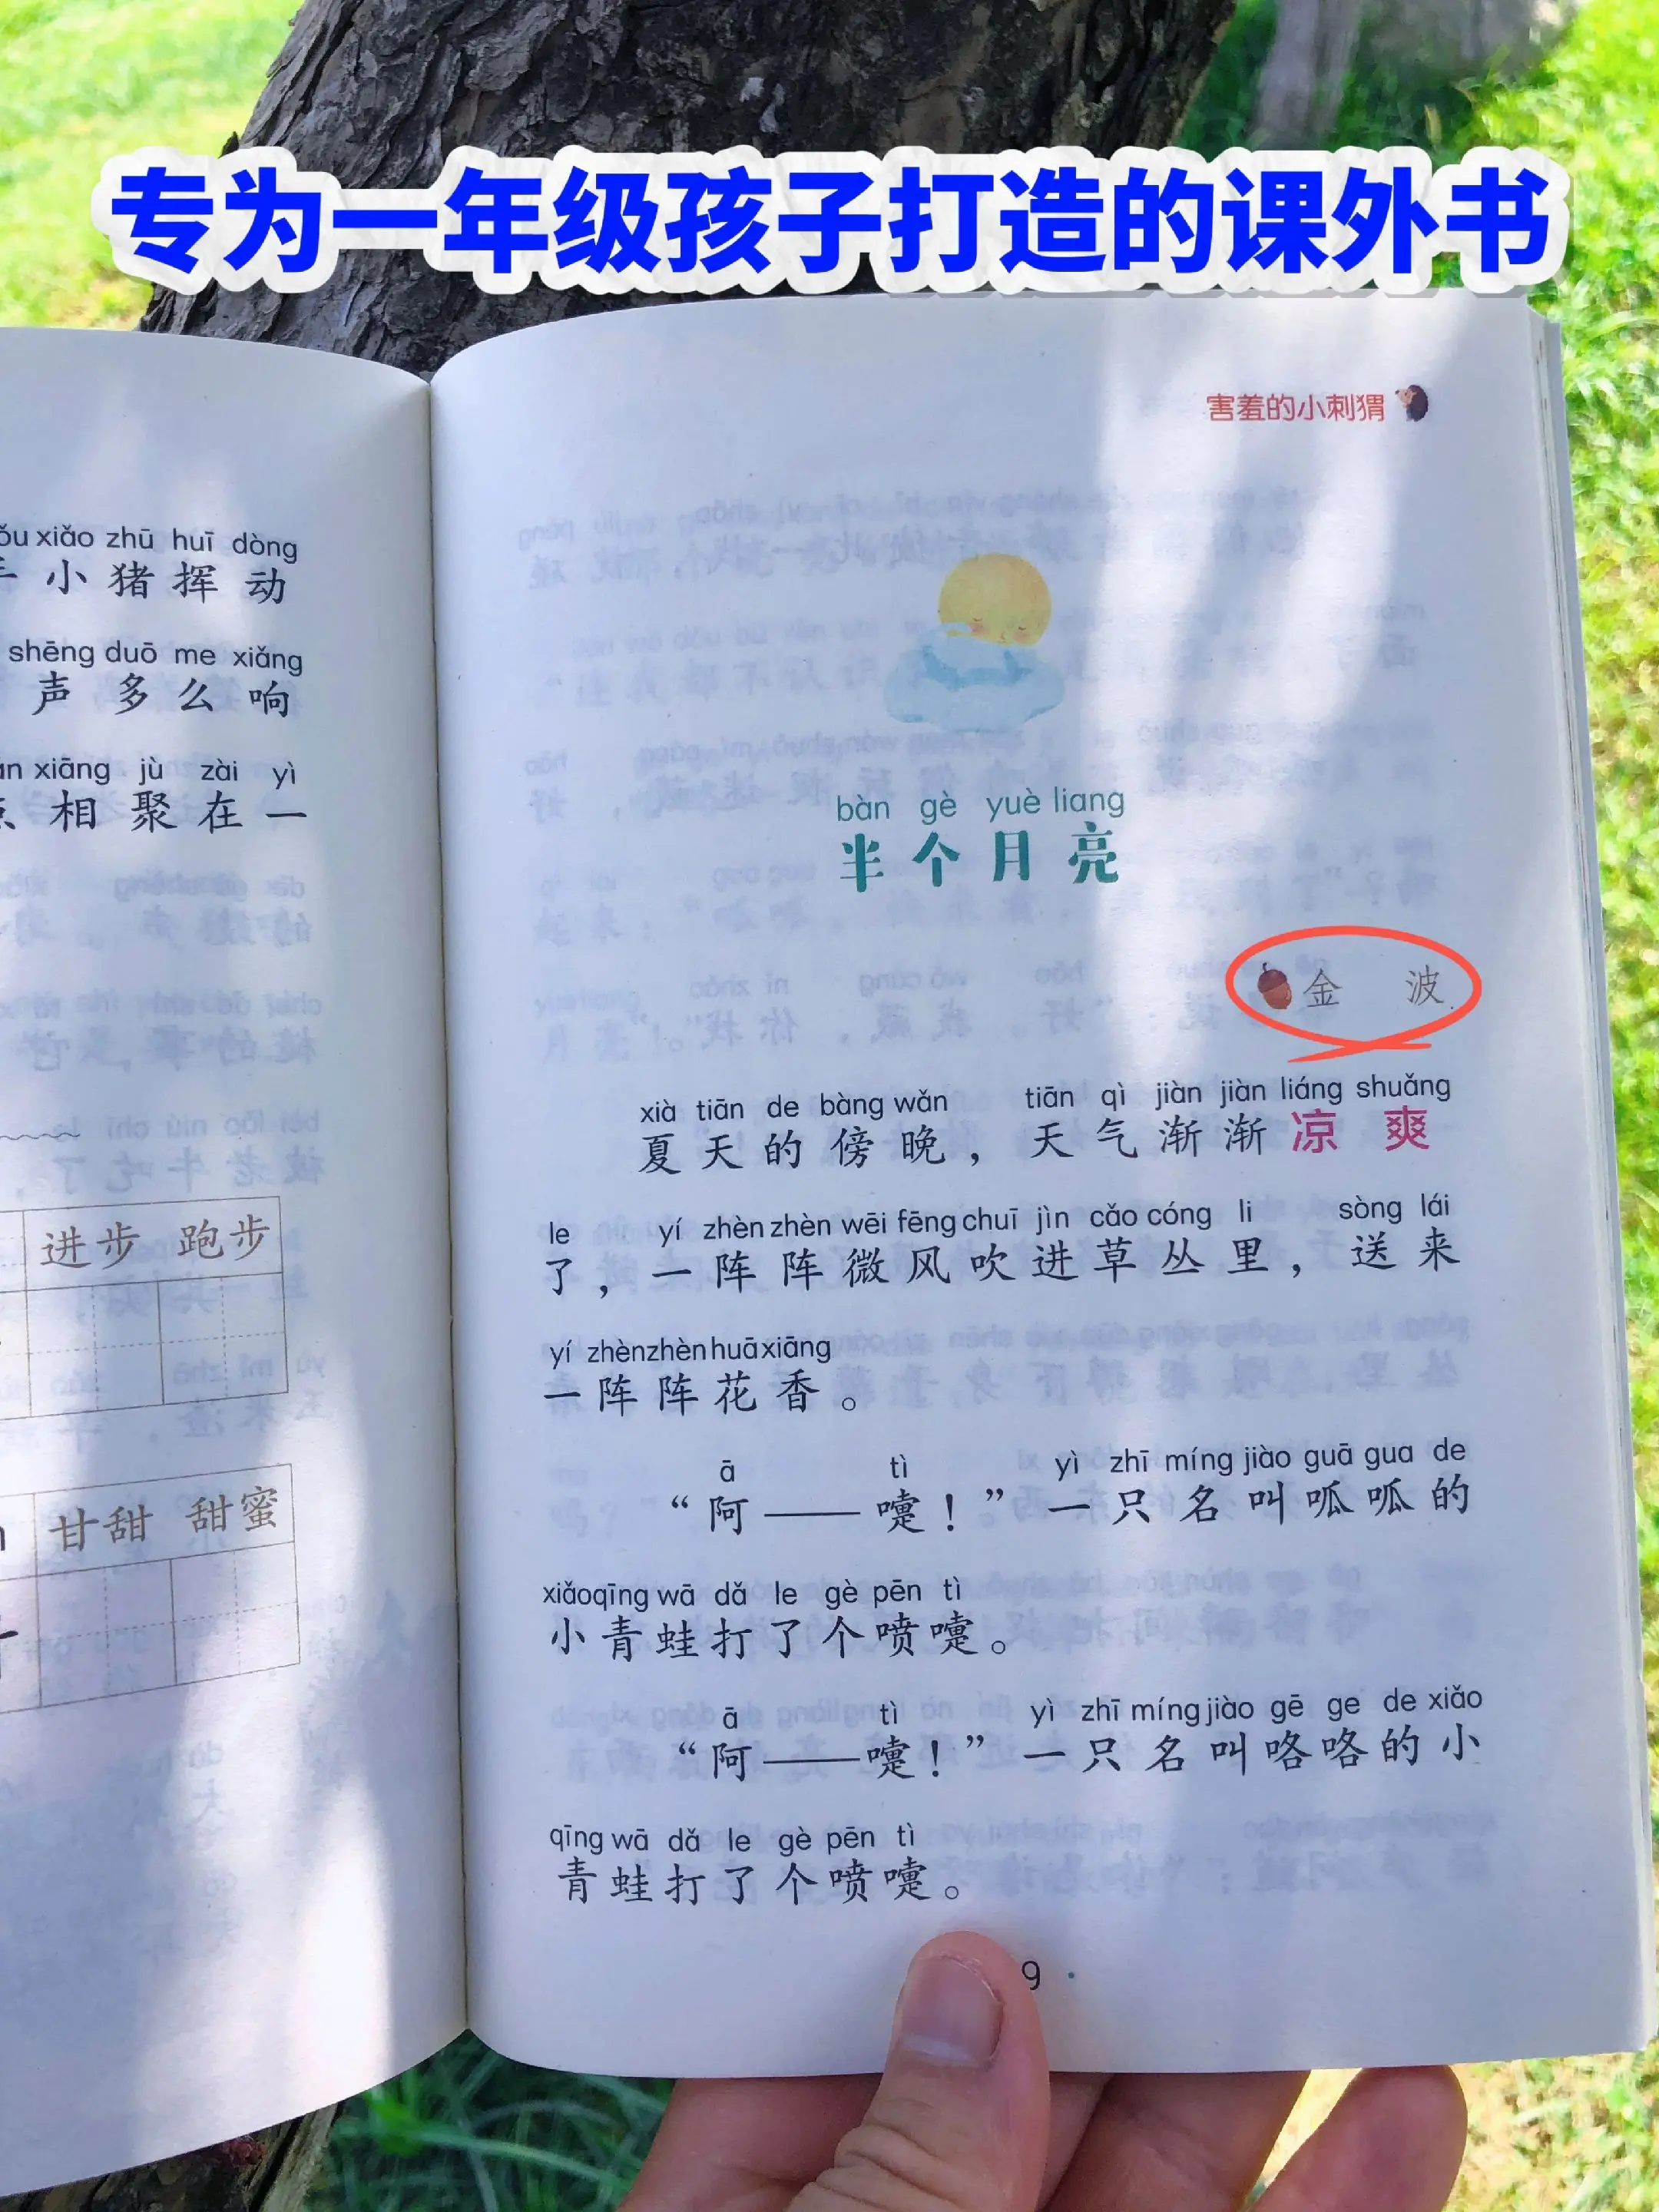 专为一年级孩子打造的课外书
xiǎo zhū huī dòng
小猪挥动
shēng duō me xiǎng
声多么响
xiāng jù zài yì
相聚在一
进步 跑步
甘甜 甜蜜
害羞的小刺猬
bàn gè yuè liang
半个月亮
金 波
xià tiān de bàng wǎn tiān qì jiàn jiàn liáng shuǎng
夏天的傍晚，天气渐渐凉爽
le yí zhèn zhèn wēi fēng chuī jìn cǎo cóng li sòng lái
了，一阵阵微风吹进草丛里，送来
yí zhèn zhèn huā xiāng
一阵阵花香。
ā tì yì zhī míng jiào guā gua de
“阿——嚏！”一只名叫呱呱的
xiǎo qīng wā dǎ le gè pēn tì
小青蛙打了个喷嚏。
ā tì yì zhī míng jiào gē ge de xiǎo
“阿——嚏！”一只名叫咯咯的小
qīng wā dǎ le gè pēn tì
青蛙打了个喷嚏。
9